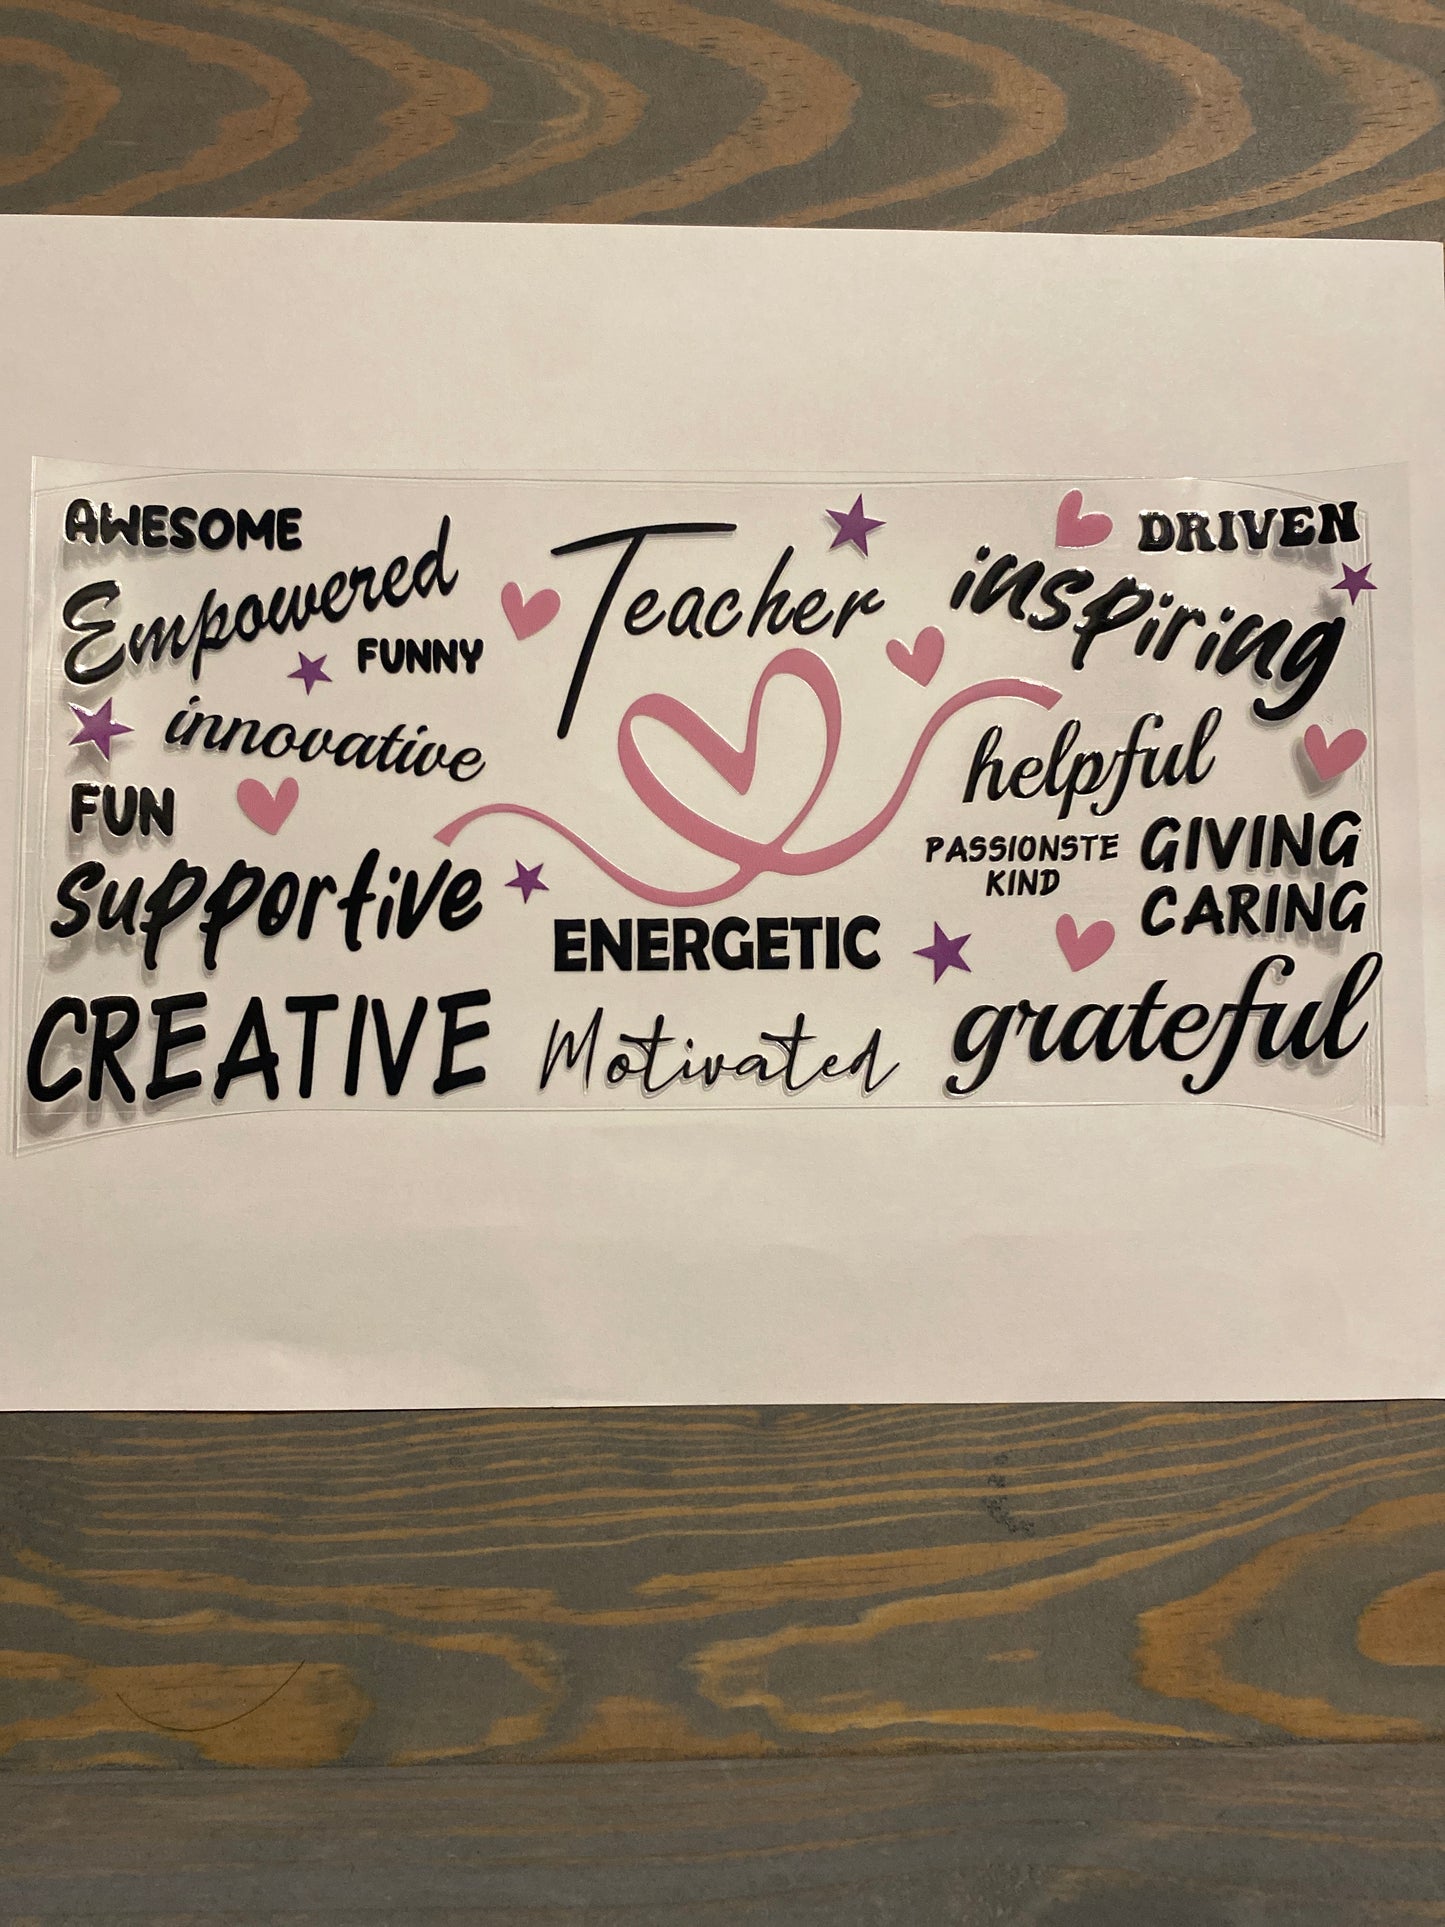 AWESOME
Empowered
FUNNY
innovative
FUN
supportive
CREATIVE
Teacher
ENERGETIC
Motivated
DRIVEN
inspiring
helpful
PASSIONSTE
KIND
GIVING
CARING
grateful